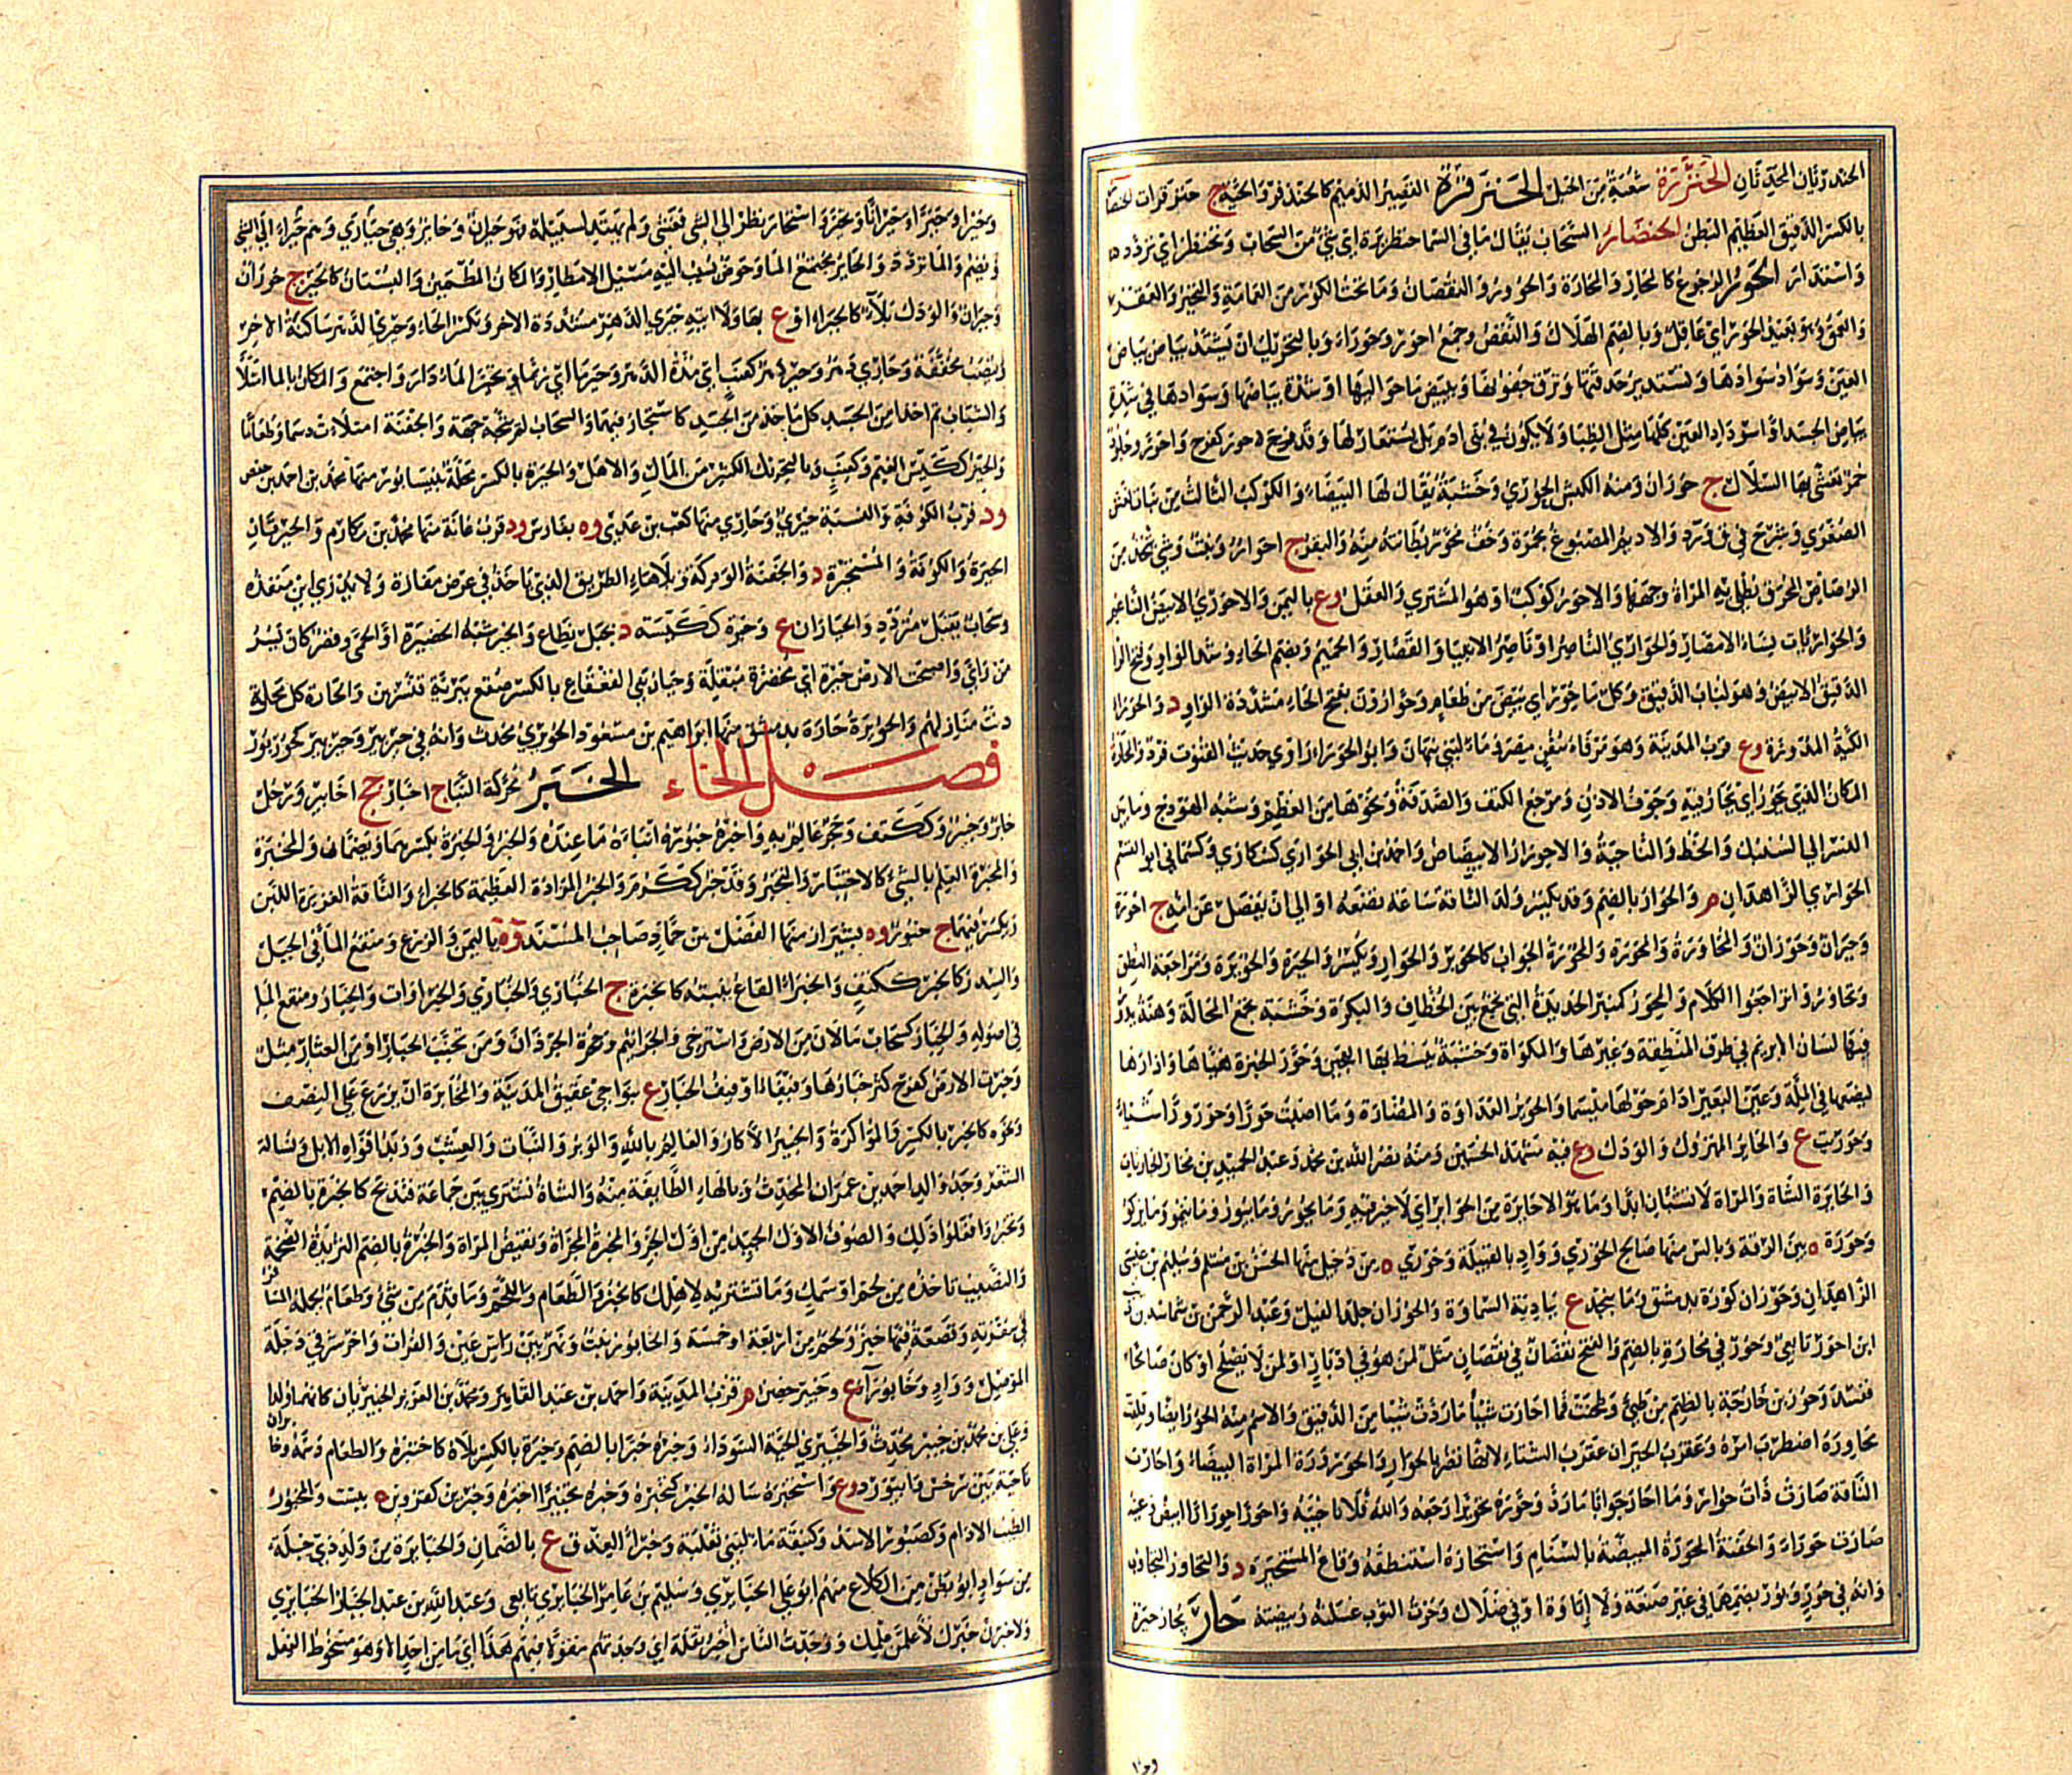 الحندرتان الحدقتان الحنزرة شعبة من الجبل الحنزقرة القصير الدميم كالحنزقر والحية ج حنزقرات الحنصار
بالكسر الدقيق العظيم البطن الحنضار السحاب يقال ما في السما
واستدار الحور الرجوع كالمحار والمحارة والحؤور والنقصان وما تحت الكور من العمامة والتحير والقعر
والعمق وهو بعيد الحور اي عاقل وبالضم الهلاك والنقص وجمع احور وحوراء وبالتحريك ان يشتد بياض بياض
العين وسواد سوادها وتستدير حدقتها وترق جفونها ويبيض ما حواليها او شدة بياضها وسوادها في شدة
بياض الجسد او اسوداد العين كلها مثل الظبا ولا يكون في بني ادم بل يستعار لها وقد حور كفرح واحور وجلود
حمر يغشى بها السلال ج حوران ومنه الكبش الحوري وخشبة يقال لها البيضاء والكوكب الثالث من بنات نعش
الصغرى وشرح في ق ود والاديم المصبوغ بحمرة وخف محور بطانته منه والبقر ج احوار ونبت وشي يتخذ من
الرصاص المحرق تطلي به المراة وجهها والاحور كوكب او هو المشتري والعقل وع باليمن والاحوري الابيض الناعم
والحواريات نساء الامصار والحواري الناصر او ناصر الانبياء والقصار والحميم وبضم الحاء وشد الواو وفتح الرا
الدقيق الابيض وهو لباب الدقيق وكل ما حور اي بيض من طعام وحوارون بفتح الحاء مشددة الواو د والحوراء
الكية المدورة وع قرب المدينة وهو مرفاء سفن مصر وماء لبني نبهان وابو الحوراء راوي حديث القنوت فرد والمحارة
المكان الذي يحور اي يحار فيه وجوف الاذن ومرجع الكتف والصدفة ونحوها من العظم وشبه الهودج وما بين
النسر الي السنبك والخط والناحية والاحورار الابيضاض واحمد بن ابي الحواري كسكارى وكسماني ابو القسم
الحواري الزاهدان م والحوار بالضم وقد يكسر ولد الناقة ساعة تضعه او الي ان يفصل عن امه ج احورة
وحيران وحوران والمحاورة والمحورة والمحورة الجواب كالحوير والحوار ويكسر والحيرة والحويرة ومراجعة النطق
وتحاوروا تراجعوا الكلام والمحور كمنبر الحديدة التي تجمع بين الخطاف والبكرة وخشبة تجمع المحالة وهنة يدور
فيها لسان الابزيم في طرف المنطقة وغيرها والمكواة وخشبة يبسط بها العجين وحور الخبزة هياها وادارها
ليضعها في الملة وعين البعير ادار حولها ميسما والحوير العداوة والمضارة وما اصبت حورا وحورورا شيئا
وحوريت ع والحائر المهزول والودك وع فيه مشهد الحسين ومنه نصر الله بن محمد وعبد الحميد بن فخار الحائريان
والحائرة الشاة والمراة لا تشبان ابدا وما هو الا حائرة من الحوائر اي لا خير فيه وما يحور وما يبور وما ينمو وما يزكو
وحورة ه بين الرقة وبالس منها صالح الحوري وواد بالقبلية وحوري ه من دجيل منها الحسن بن مسلم وسليم بن عيسى
الزاهدان وحوران كورة بدمشق وما بنجد ع ببادية السماوة والحوران جلد الفيل وعبد الرحمن بن شماسة بن ذيب
ابن احور تابعي وحور في محارة بالضم والفتح نقصان في نقصان مثل لمن هو في ادبار او لمن لا يصلح او كان صالحا
ففسد وحور بن خارجة بالضم من طيئ وطحنت فما احارت شيأ ما ردت شيئا من الدقيق والاسم منه الحور ايضا وقلقت
محاوره اضطرب امره وعقرب الحيران عقرب الشتاء لانها تضر بالحوار والحورورة المراة البيضاء واحارت
الناقة صارت ذات حوار وما احار جوابا ما رد وحوره تحويرا رجعه والله فلانا خيبه واحور احورارا ابيض وعينه
صارت حوراء والجفنة المحورة المبيضة بالسنام واستحاره استنطقه وقاع المستحيرة د والتحاور التجاوب
وانه في حور وبور بضمهما في غير صنعة ولا اتاوة او في ضلال وحرت الثوب غسلته وبيضته حار يحار حيرة
وحيرا وحيرا وحيرانا وتحير واستحار نظر الي الشي فغشي ولم يهتد لسبيله فهو حيران وحائر وهي حيرى وهم حيارى
ويضم والماء تردد والحائر مجتمع الماء وحوض يسيب اليه مسيل الامطار والمكان المطمئن والبستان كالحير ج حوران
وحيران والودك وكربلاء كالحيراء او ع بها ولا اتيه حيري الدهر مشددة الاخر وتكسر الحاء وحيري الدهر ساكنة الاخر
وتنصب مخففة وحاري دهر وحير دهر كعنب اي مدة الدهر وحيرما اي ربما وتحير الماء دار واجتمع والمكان بالماء امتلأ
والشباب تم اخذا من الجسد كل ماخذ من الجسد كاستحار فيهما والسحاب لم يتجه جهة والجفنة امتلأت دسما وطعاما
والحير ككيس الغيم وكعنب وبالتحريك الكثير من المال والاهل والحيرة بالكسر محلة بنيسابور منها محمد بن احمد بن حفص
ود قرب الكوفة والنسبة حيري وحاري منها كعب بن عدي وه بفارس ود قرب عانة منها محمد بن مكارم والحيرتان
الحيرة والكوفة والمستحيرة د والجفنة الودكة وبلا هاء الطريق الذي ياخذ في عرض مفازة ولا يدري اين منفذه
وسحاب ثقيل متردد والحياران ع وحيرة ككيسة د بجبل نطاع والحير شبه الحظيرة او الحمى وقصر كان بسر
من راي واصبحت الارض حيرة اي مخضرة مبقلة وحيار بني القعقاع بالكسر صقع ببرية قنسرين والحارة كل محلة
دنت منازلهم والحويرة حارة بدمشق منها ابراهيم بن مسعود الحويري محدث وانه في حير بير وحير بير كحور بور
فصل الخاء الخبر محركة النبأ ج اخبار جج اخابير ورجل
خابر وخبير وككتف وحجر عالم به واخبره خبوره انباءه ما عنده والخبر والخبرة بكسرهما ويضمان والمخبرة
والمخبرة العلم بالشيء كالاختبار والتخبر وقد خبر ككرم والخبر المزادة العظيمة كالخبراء والناقة الغزيرة اللبن
ويكسر فيهما ج خبور وه بشيراز منها الفضل بن حماد صاحب المسند وة باليمن والزرع ومنقع الماء في الجبل
والسدر كالخبر ككتف والخبراء القاع ينبته كالخبرة ج الخبارى والخباري والخبراوات والخبار ومنقع الما
في اصوله والخبار كسحاب ما لان من الارض واسترخى والجراثيم وجحرة الجرذان ومن تجنب الخبار امن العثار مثل
وخبرت الارض كفرح كثر خبارها وفيفاء او فيف الخبار ع بنواحي عقيق المدينة والمخابرة ان يزرع على النصف
ونحوه كالخبر بالكسر والمؤاكرة والخبير الاكار والعالم بالله والوبر والنبات والعشب وزبد افواه الابل ونسالة
الشعر وجد والد احمد بن عمران المحدث وبالهاء الطائفة منه والشاة تشترى بين جماعة فتذبح كالخبرة بالضم
وتخبروا فعلوا ذلك والصوف الاول الجيد من اول الجز والمخبرة المخراة ونقيض المراة والخبرة بالضم الثريدة الضخمة
والنصيب تاخذه من لحم او سمك وما تشتريه لاهلك كالخبر والطعام واللحم وما قدم من شيء وطعام يحمله المسافر
في سفرته وقصعة فيها خبز ولحم بين اربعة او خمسة والخابور نبت ونهر بين راس عين والفرات واخر شرقي دجلة
الموصل وواد وخابوراء ع وخيبر حصن م قرب المدينة واحمد بن عبد القاهر ومحمد بن العزيز الخيبريان كانهما ولدا به
وعلي بن محمد بن خيبر محدث والخيبري الحية السوداء وخبره خبرا بالضم وخبرة بالكسر بلاه كاختبره والطعام دسمه وخابران
ناحية بين سرخس وابيورد وع واستخبره ساله الخبر كتخبره وخبره تخبيرا اخبره وخبرين كقزوين ه ببست والمخبور
الطيب الادام وكصبور الاسد وكنبقة ماء لبني ثعلبة وخبراء العذق ع بالصمان والخبايرة من ولد ذي جبلة
من سواد ابو بطن من الكلاع منهم ابو علي الخبايري وسليم بن عامر الخبايري تابعي وعبد الله بن عبد الجبار الخبايري
ولاخبرن خبرك لأعلمن علمك ووجدت الناس اخبر تقله اي وجدتهم مقولا فيهم هذا اي ما من احد الا وهو مسخوط الفعل